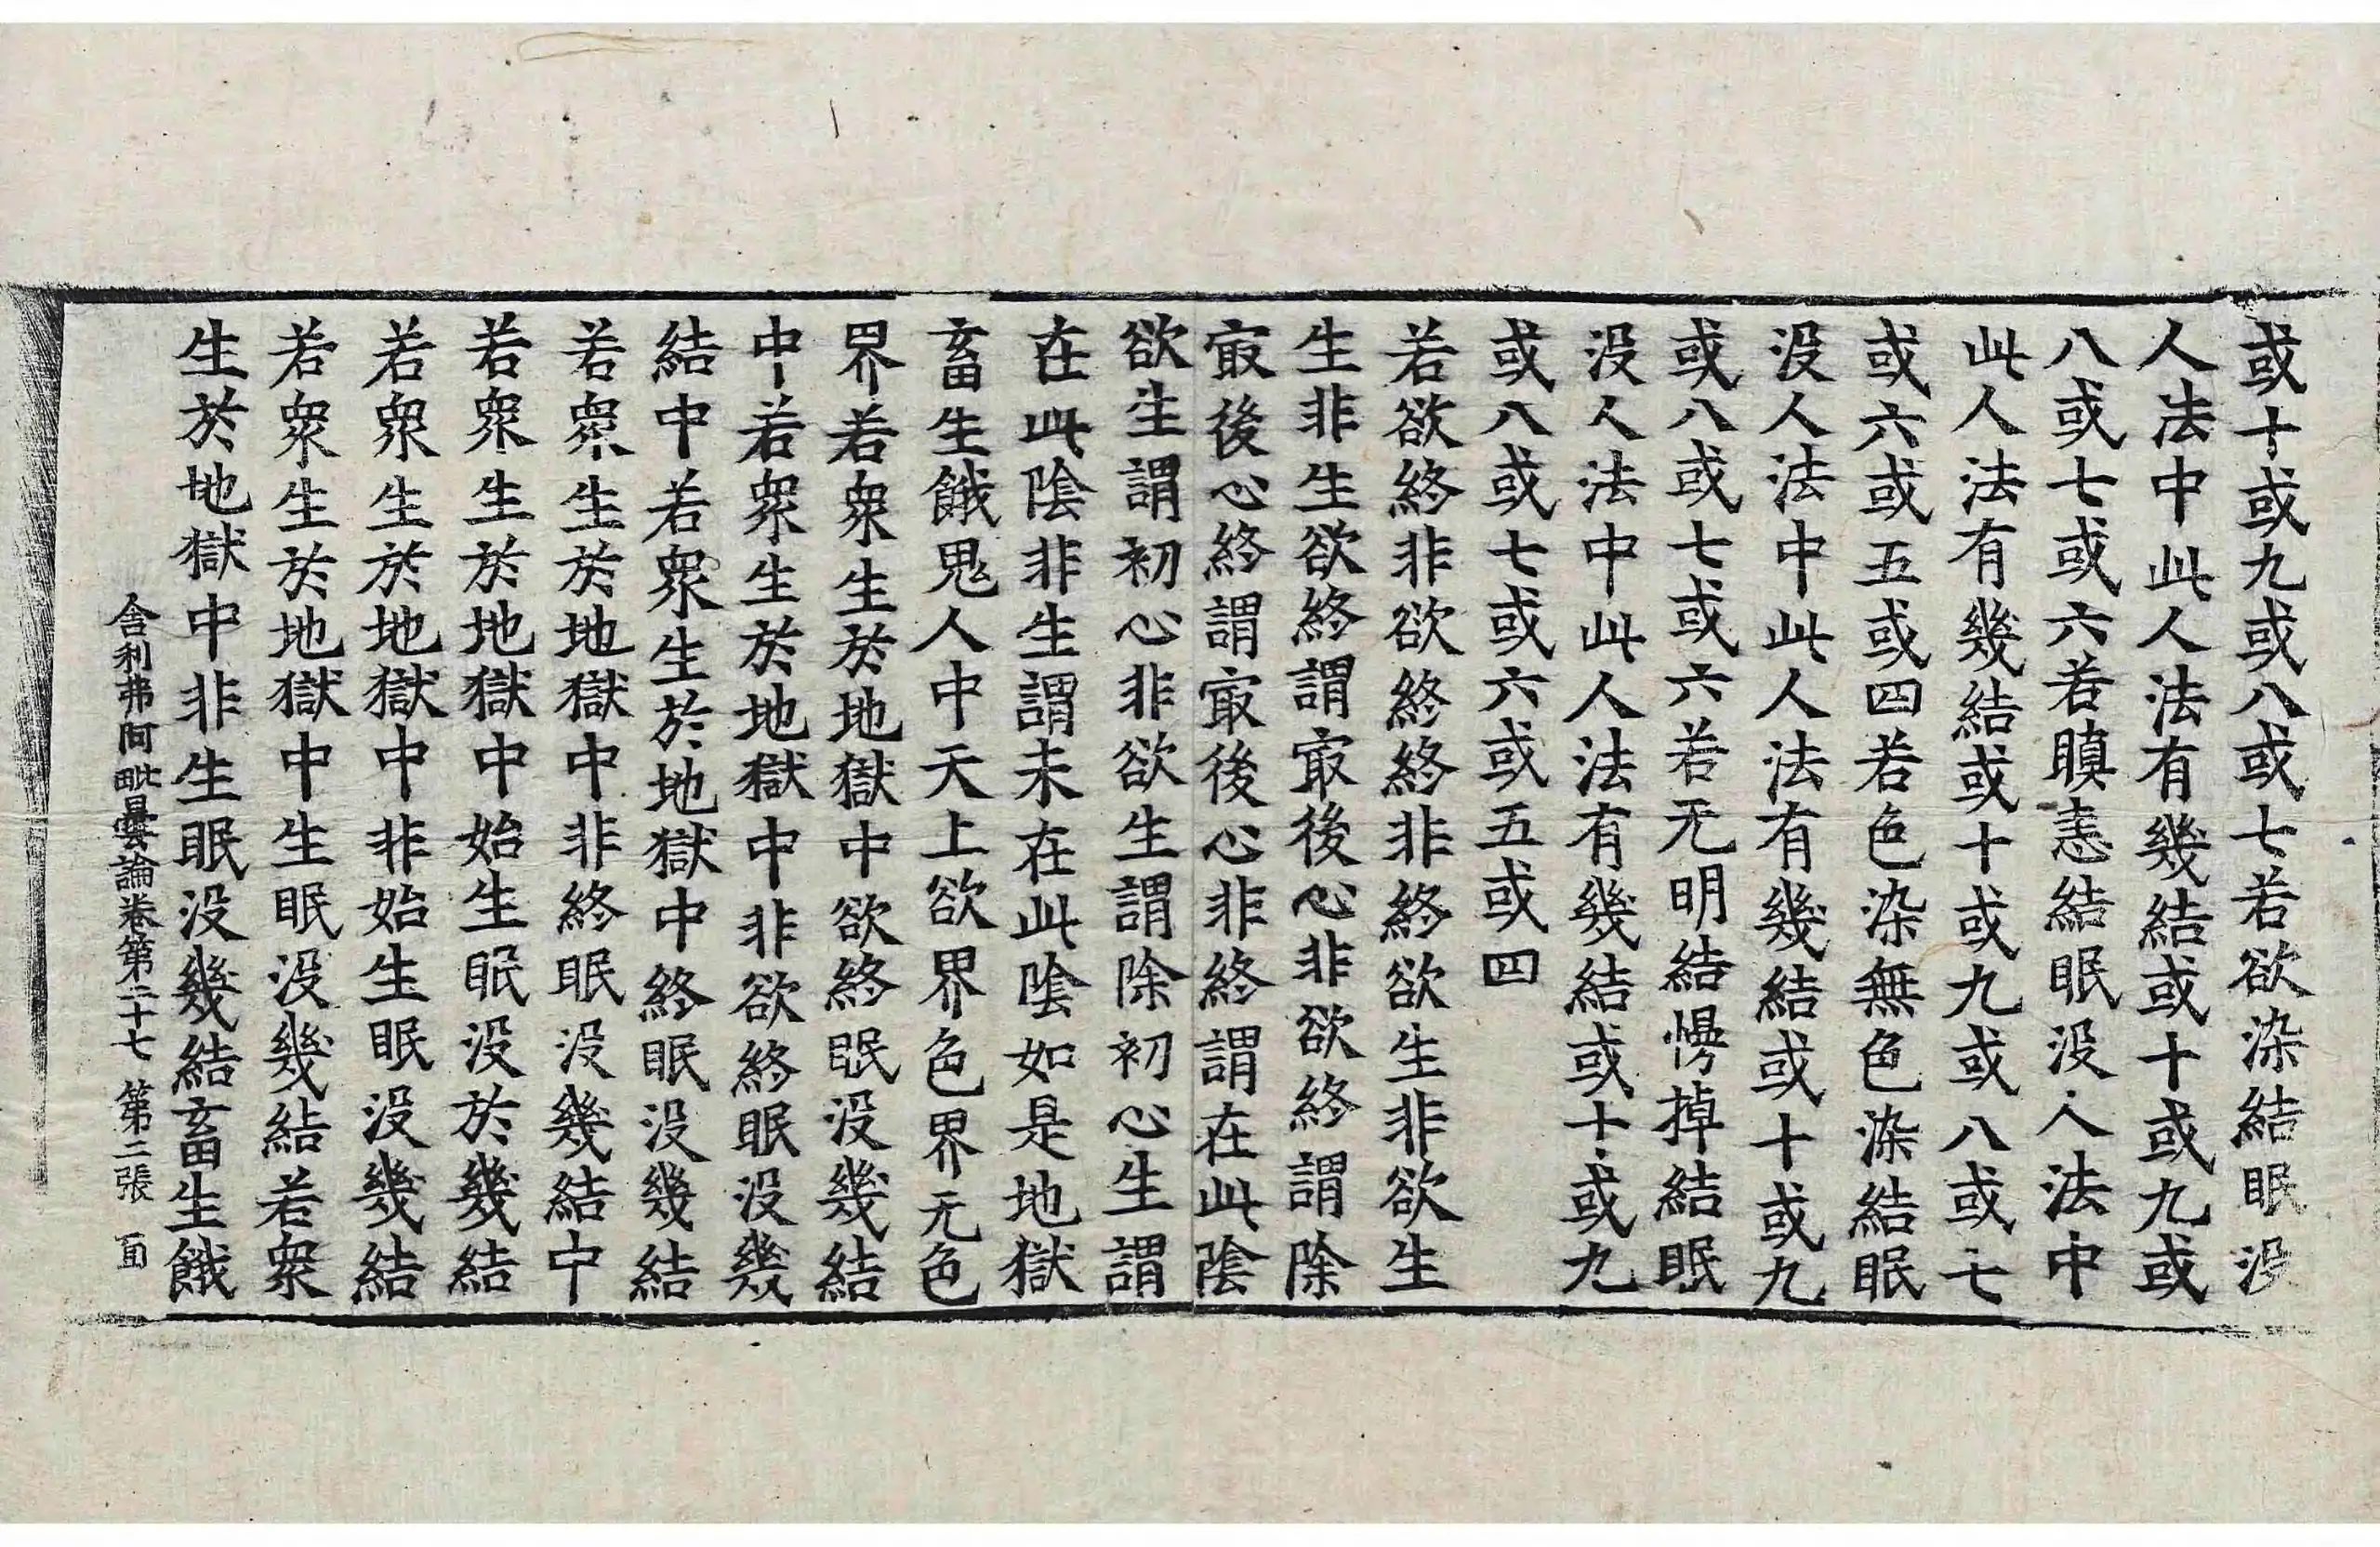 或十或九或八或七若欲染結眠没
人法中此人法有幾結或十或九或
八或七或六若瞋恚結眠没人法中
此人法有幾結或十或九或八或七
或六或五或四若色染無色染結眠
没人法中此人法有幾結或十或九
或八或七或六若无明結慢掉結眠
没人法中此人法有幾結或十或九
或八或七或六或五或四
若欲終非欲終終非終欲生非欲生
生非生欲終謂㝡後心非欲終謂除
㝡後心終謂㝡後心非終謂在此陰
欲生謂初心非欲生謂除初心生謂
在此陰非生謂未在此陰如是地獄
畜生餓鬼人中天上欲界色界无色
界若衆生於地獄中欲終眠没幾結
中若衆生於地獄中非欲終眠没幾
結中若衆生於地獄中終眠没幾結
若衆生於地獄中非終眠没幾結中
若衆生於地獄中始生眠没於幾結
若衆生於地獄中非始生眠没幾結
若衆生於地獄中生眠没幾結若衆
生於地獄中非生眠没幾結畜生餓
舍利弗阿毗曇論卷第二十七 第二張